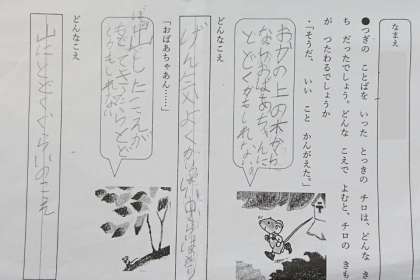 なまえ
●つぎの ことばを いった とっきの チロは、どんな き
ち だったでしょう。どんな こえで よむと、チロの きも
が つたわるでしょうか
・「そうだ、いい こと かんがえた。」
おかの上の木から
ならおばあちゃんに
とどくかもしれない
どんなこえ
げん気よく
「おばあちゃあん……」
出したこえが
とど
かもしれない
どんなこえ
山にとどくぐらいのこえ